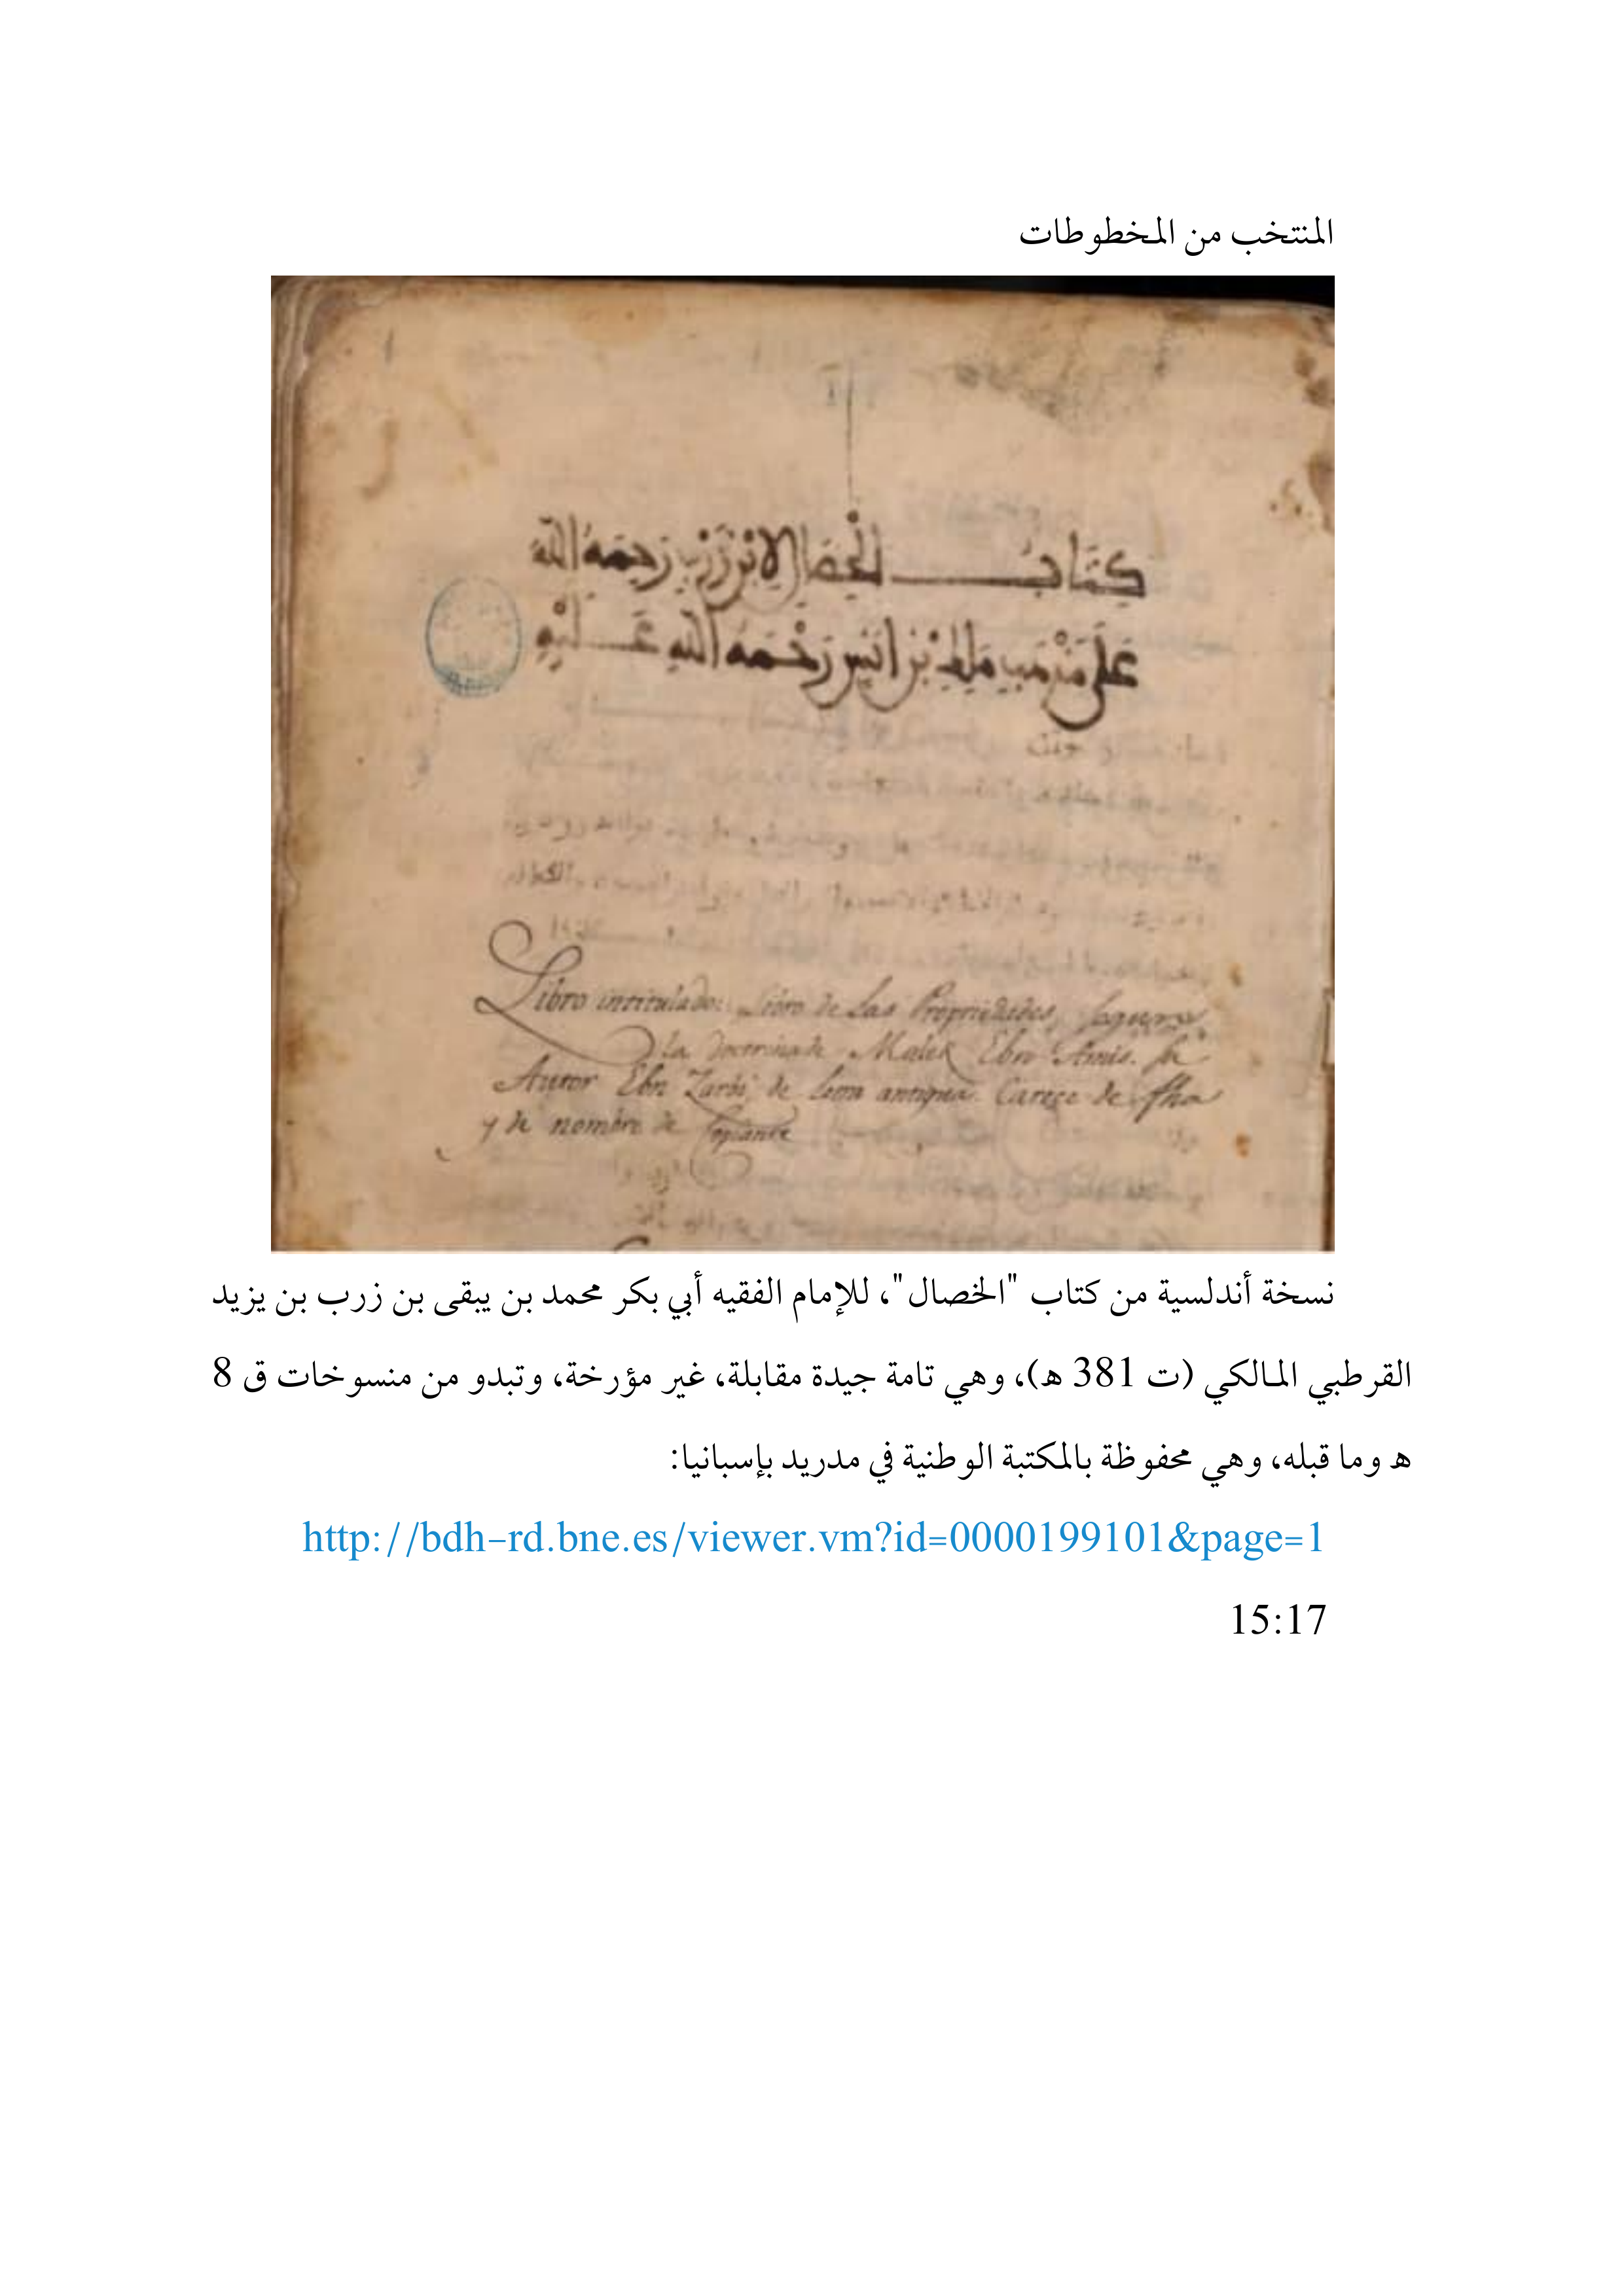 المنتخب من المخطوطات
كِتَابُ الْخِصَالِ لِابْنِ زَرْبٍ رَحِمَهُ اللهُ
عَلَى مَذْهَبِ مَالِكِ بْنِ أَنَسٍ رَحْمَةُ اللهِ عَلَيْهِ
Libro intitulado: Libro de las Propriedades, segun
la doctrina de Malek Ebn Anis. Su
Autor Ebn Zarbi, de letra antiqua. Careçe de fha
y de nombre de Copiante
نسخة أندلسية من كتاب "الخصال"، للإمام الفقيه أبي بكر محمد بن يبقى بن زرب بن يزيد
القرطبي المالكي (ت 381 ه)، وهي تامة جيدة مقابلة، غير مؤرخة، وتبدو من منسوخات ق 8
ه وما قبله، وهي محفوظة بالمكتبة الوطنية في مدريد بإسبانيا:
http://bdh-rd.bne.es/viewer.vm?id=0000199101&page=1
15:17